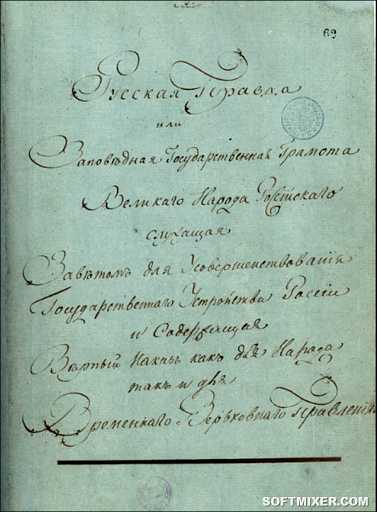 69
Русская Правда
или
Заповѣдная Государственная Грамота
Великаго Народа Россiйскаго
служащая
Завѣтомъ для Усовершенствованiя
Государственнаго Устройства Россiи
и Содержащая
Вѣрный Наказъ какъ для Народа
такъ и для
Временнаго Верьховнаго Правленiя
SOFTMIXER.COM